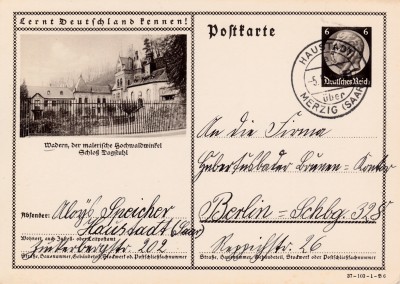 Lernt Deutschland kennen!
Wadern, der malerische Hochwaldwinkel
Schloß Dagstuhl
Absender: Aloys Speicher
Haustadt (Saar)
Wohnort, auch Zustell- oder Leitpostamt
Hinterbergstr. 202
Straße, Hausnummer, Gebäudeteil, Stockwerk od. Postschließfachnummer
Postkarte
6 6
Deutsches Reich
HAUSTADT
über
MERZIG (SAAR)
An die Firma
Berlin-Schbg.
26
Straße, Hausnummer, Gebäudeteil, Stockwerk od. Postschließfachnummer
37-103-1-B6